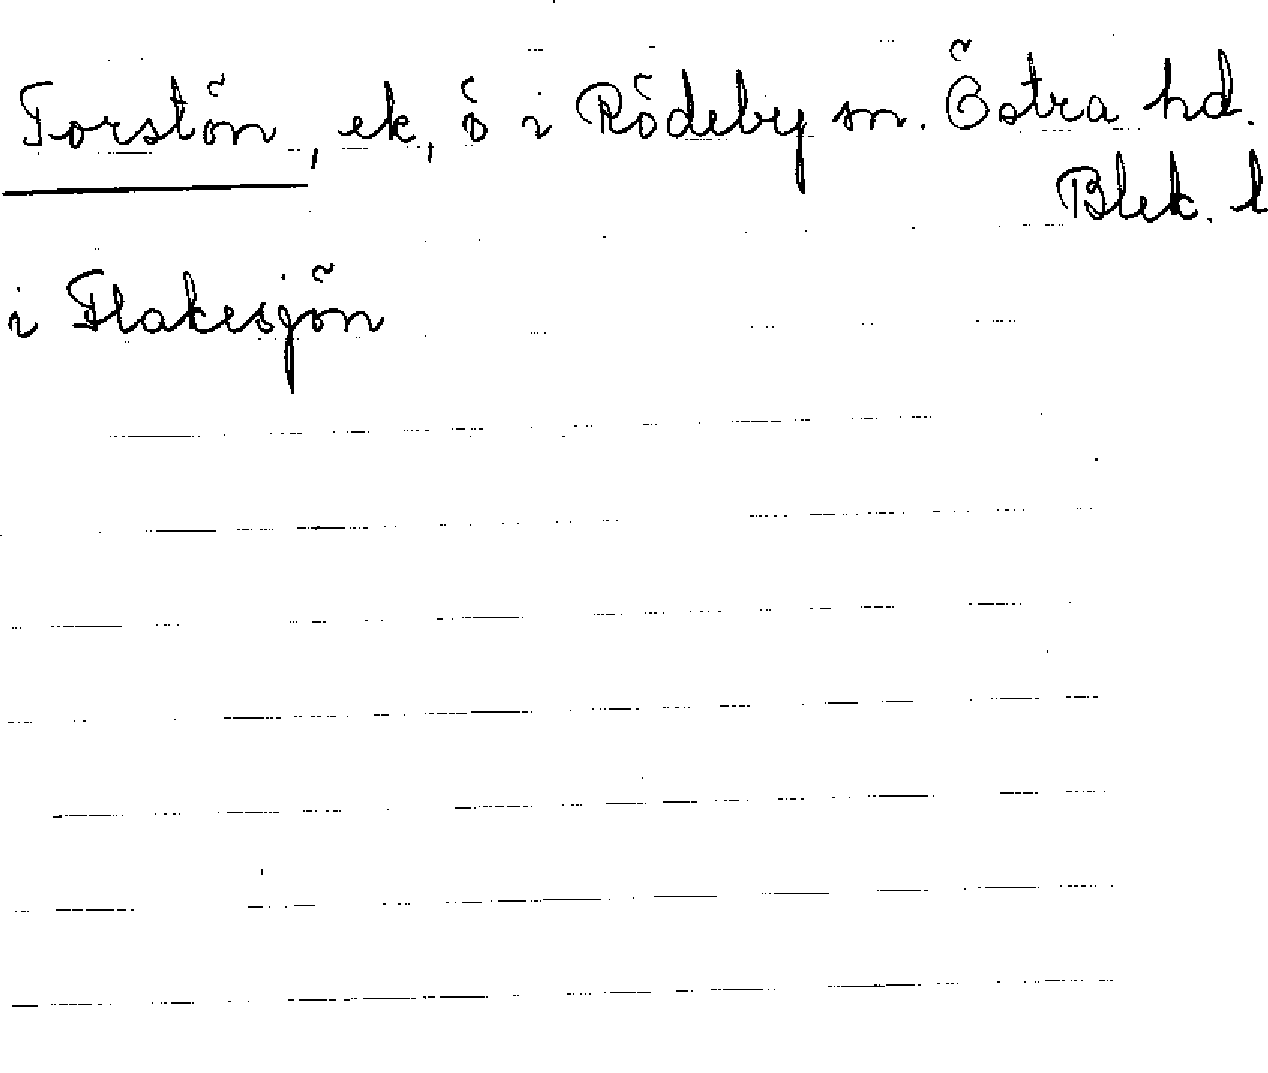 Torstön, ek, ö i Rödeby sn. Östra hd.
Blek. l
i Flakesjön